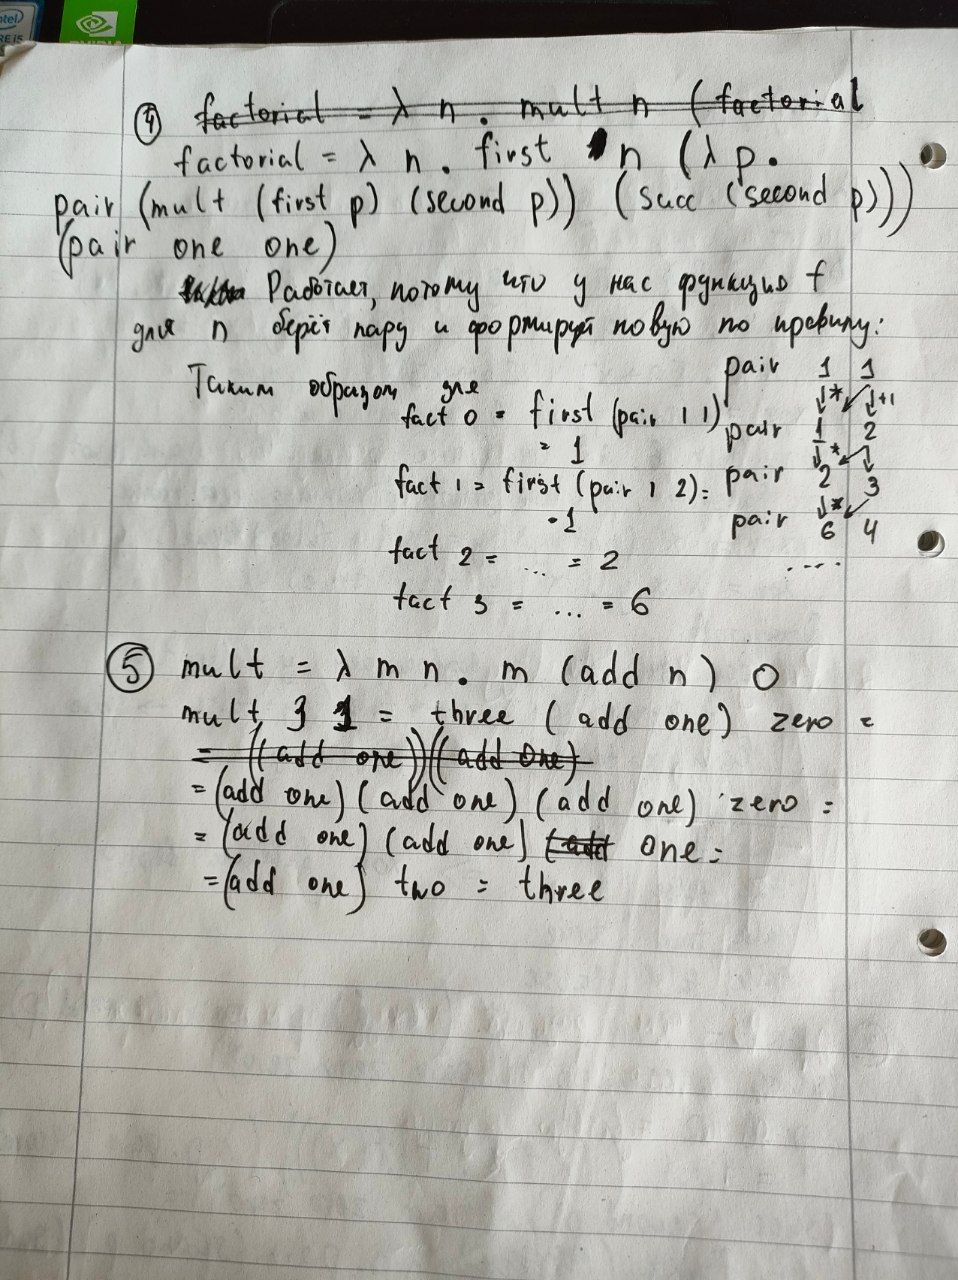 intel
CORE i5
NVIDIA
④ factorial = λ n . mult n ( factorial
factorial = λ n . first n ( λ p .
pair (mult (first p) (second p)) (succ (second p)))
(pair one one)
Работает, потому что у нас функция f
для n берёт пару и формирует новую по правилу:
Таким образом для
pair 1 1
↓* ↙ ↓+1
fact 0 = first (pair 1 1)
pair 1 2
= 1
↓* ↙ ↓
fact 1 = first (pair 1 2) =
pair 2 3
= 1
↓* ↙
pair 6 4
fact 2 = ... = 2
....
fact 3 = ... = 6
⑤ mult = λ m n . m (add n) 0
mult 3 1 = three (add one) zero =
= ((add one))((add one)
= (add one) (add one) (add one) zero =
= (add one) (add one) (add one =
= (add one) two = three